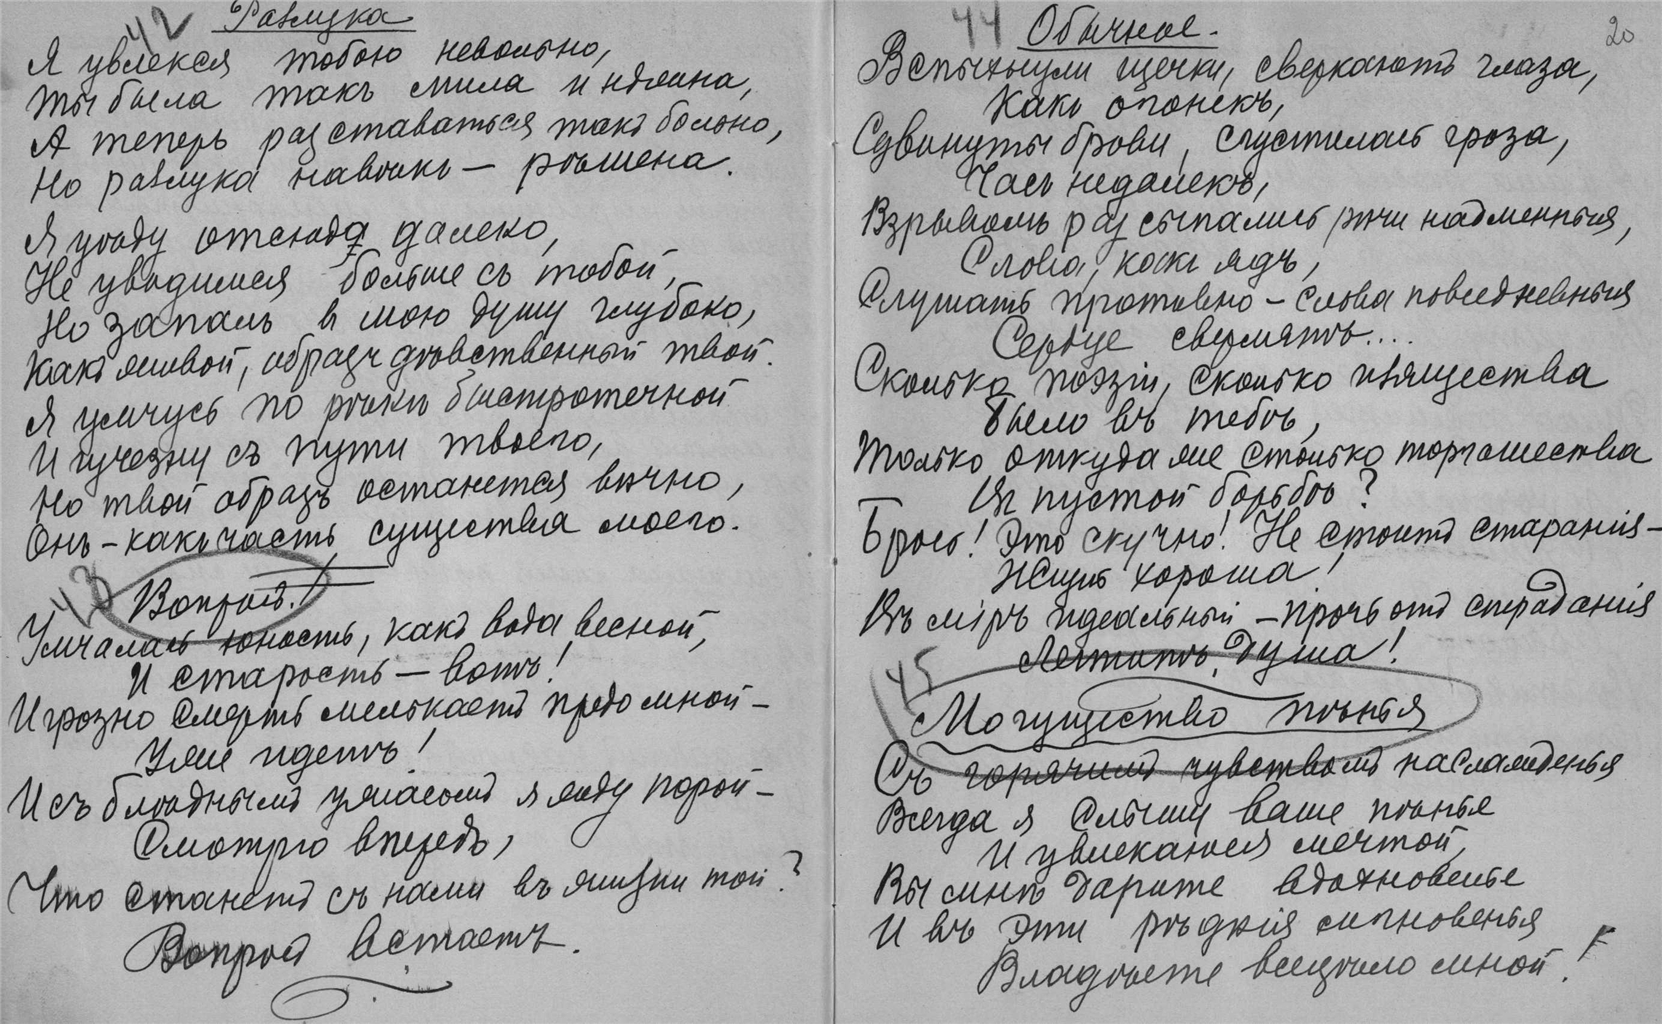 42
Разлука
Я увлекся тобою невольно,
Ты была такъ мила и нѣжна,
А теперь разставаться такъ больно,
Но разлука навѣкъ — рѣшена.
Я уѣду отсюда далеко,
Не увидимся больше съ тобой,
Но запалъ в мою душу глубоко,
Какъ живой, образъ дѣвственный твой.
Я умчусь по рѣкѣ быстротечной
И изчезну съ пути твоего,
Но твой образъ останется вѣчно,
Онъ – какъ часть существа моего.
43
Вопросъ!
Умчалась юность, какъ вода весной,
И старость – вотъ!
И грозно смерть мелькаетъ предо мной –
Уже идетъ!
И съ блѣднымъ ужасомъ я жду порой –
Смотрю впередъ,
Что станетъ съ нами въ жизни той?
Вопросъ встаетъ.
44
20
Обычное.
Вспыхнули щечки, сверкаютъ глаза,
Какъ огонекъ,
Сдвинуты брови, сгустилась гроза,
Часъ недалекъ,
Взрывомъ разсыпались рѣчи надменныя,
Слова, какъ ядъ,
Слушать противно – слова повседневныя
Сердце сверлятъ....
Сколько поэзіи, сколько изящества
Было въ тебѣ,
Только откуда же столько торгашества
Въ пустой борьбѣ?
Брось! Это скучно! Не стоитъ старанія –
Жизнь хороша!
Въ міръ идеальный – прочь отъ страданія
Летитъ душа!
45
Могущество пѣнья
Съ горячимъ чувствомъ наслажденья
Всегда я слышу ваше пѣнье
И увлекаюся мечтой,
Вы мнѣ дарите вдохновенье
И въ эти рѣдкія мгновенья
Владѣете всецѣло мной!